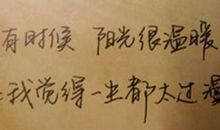 有时候 阳光很温暖
我觉得一尘都太过